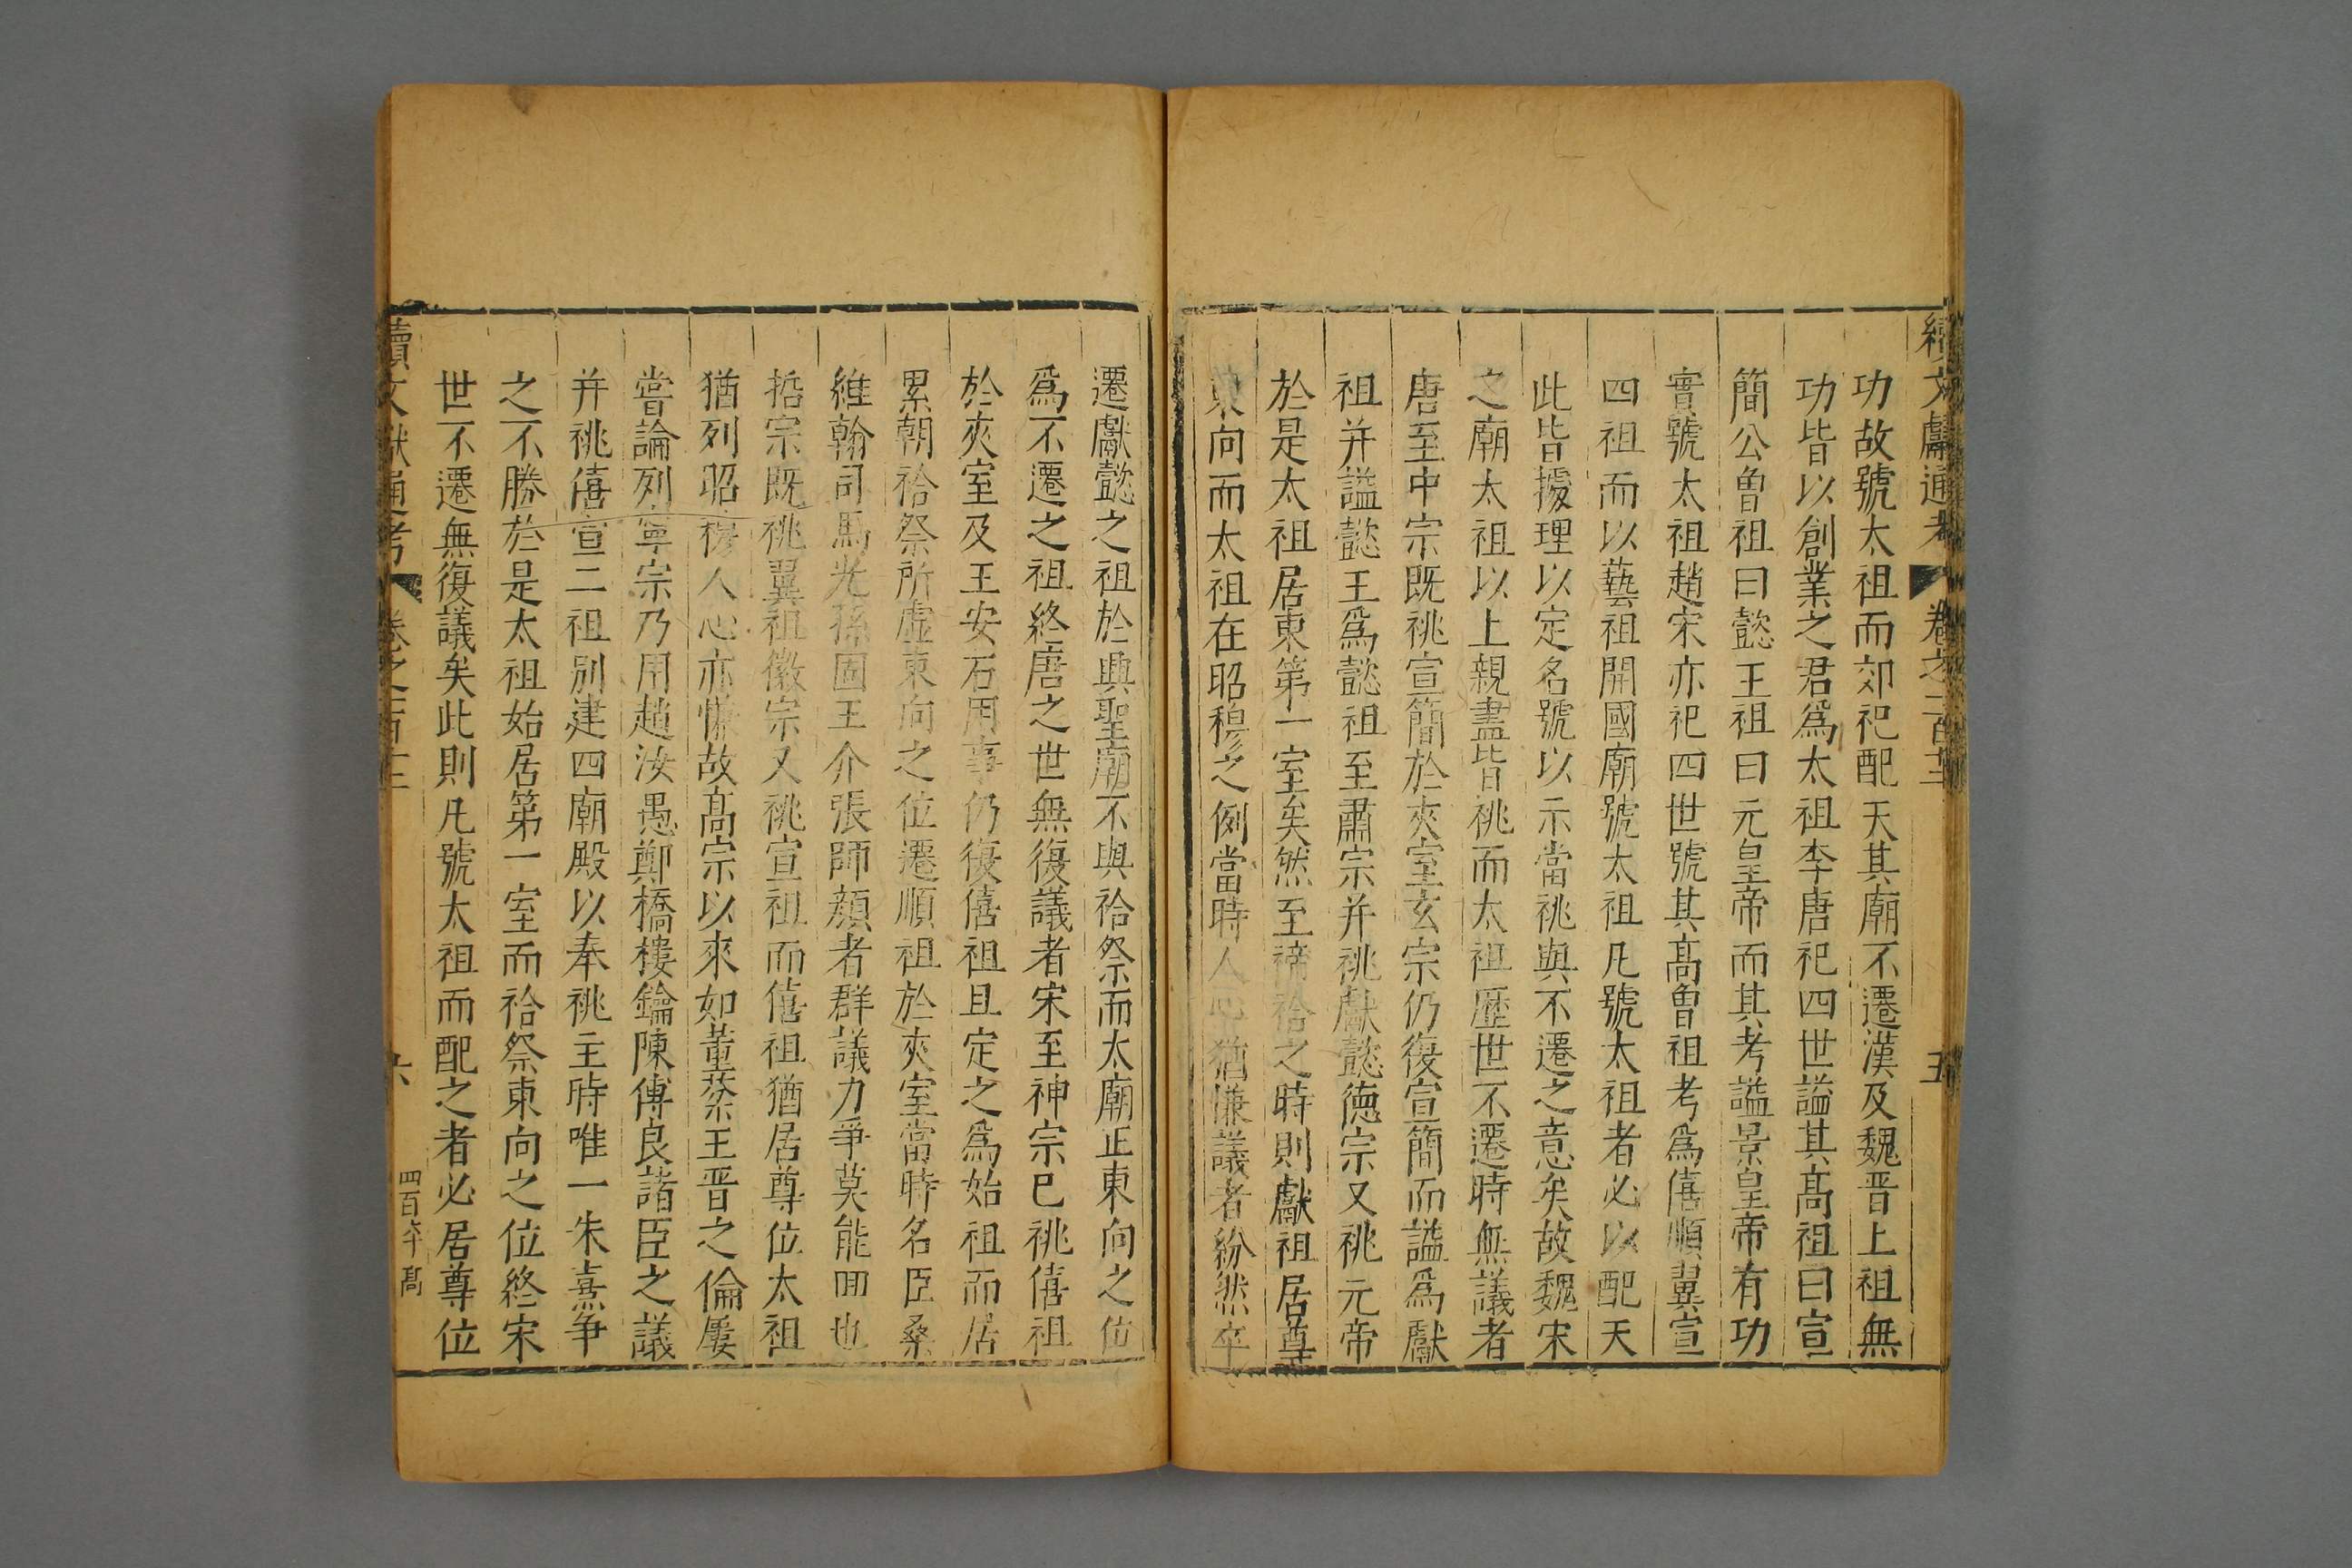 續文獻通考 卷之一百十三 五
功故號太祖而郊祀配天其廟不遷漢及魏晋上祖無
功皆以創業之君爲太祖李唐祀四世謚其高祖曰宣
簡公曽祖曰懿王祖曰元皇帝而其考謚景皇帝有功
實號太祖趙宋亦祀四世號其高曽祖考爲僖順翼宣
四祖而以藝祖開國廟號太祖凡號太祖者必以配天
此皆據理以定名號以示當祧與不遷之意矣故魏宋
之廟太祖以上親盡皆祧而太祖歷世不遷時無議者
唐至中宗既祧宣簡於夾室玄宗仍復宣簡而謚爲獻
祖并謚懿王爲懿祖至肅宗并祧獻懿德宗又祧元帝
於是太祖居東第一室矣然至禘祫之時則獻祖居尊
東向而太祖在昭穆之例當時人心猶慊議者紛然卒
遷獻懿之祖於興聖廟不與祫祭而太廟正東向之位
爲不遷之祖終唐之世無復議者宋至神宗已祧僖祖
於夾室及王安石用事仍復僖祖且定之爲始祖而居
累朝祫祭所虛東向之位遷順祖於夾室當時名臣桑
維翰司馬光孫固王介張師顏者群議力爭莫能回也
拞宗既祧翼祖徽宗又祧宣祖而僖祖猶居尊位太祖
猶列昭穆人心亦慊故高宗以來如董棻王晋之倫屢
嘗論列寧宗乃用趙汝愚鄭橋樓鑰陳傅良諸臣之議
并祧僖宣二祖別建四廟殿以奉祧主時唯一朱熹争
之不勝於是太祖始居第一室而祫祭東向之位終宋
世不遷無復議矣此則凡號太祖而配之者必居尊位
續文獻通考 卷之一百十三 六 四百卒 髙